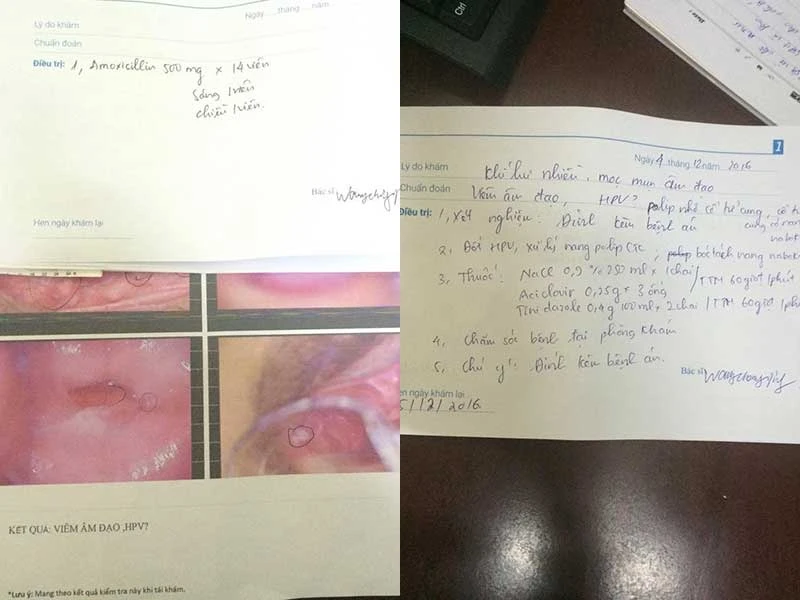 Ngày.....tháng.....năm.....
Lý do khám
Chuẩn đoán
Điều trị: 1, Amoxicillin 500 mg x 14 viên
Sáng 1 viên
chiều 1 viên.
Bác sĩ
Hẹn ngày khám lại
KẾT QUẢ: VIÊM ÂM ĐẠO ,HPV?
*Lưu ý: Mang theo kết quả kiểm tra này khi tái khám.
Ctrl
1
Ngày 4 tháng 12 năm 2016
Lý do khám Khí hư nhiều, mọc mụn âm đạo
Chuẩn đoán Viêm âm đạo, HPV? polip nhỏ cổ tử cung, cổ tử
cung có nang
naboth
Điều trị: 1, Xét nghiệm: Đính kèm bệnh án
2, Đốt HPV, xử lý nang polip CTC, bóc tách nang naboth
3, Thuốc: NaCl 0,9% 250 ml x 1 chai / TTM 60 giọt 1 phút
Aciclovir 0,25g x 3 ống
Tinidazole 0,4g 100ml x 2 chai / TTM 60 giọt 1 phút
4, Chăm sóc bệnh tại phòng khám
5, Chú ý: Đính kèm bệnh án.
Bác sĩ
ẹn ngày khám lại
5/12/2016